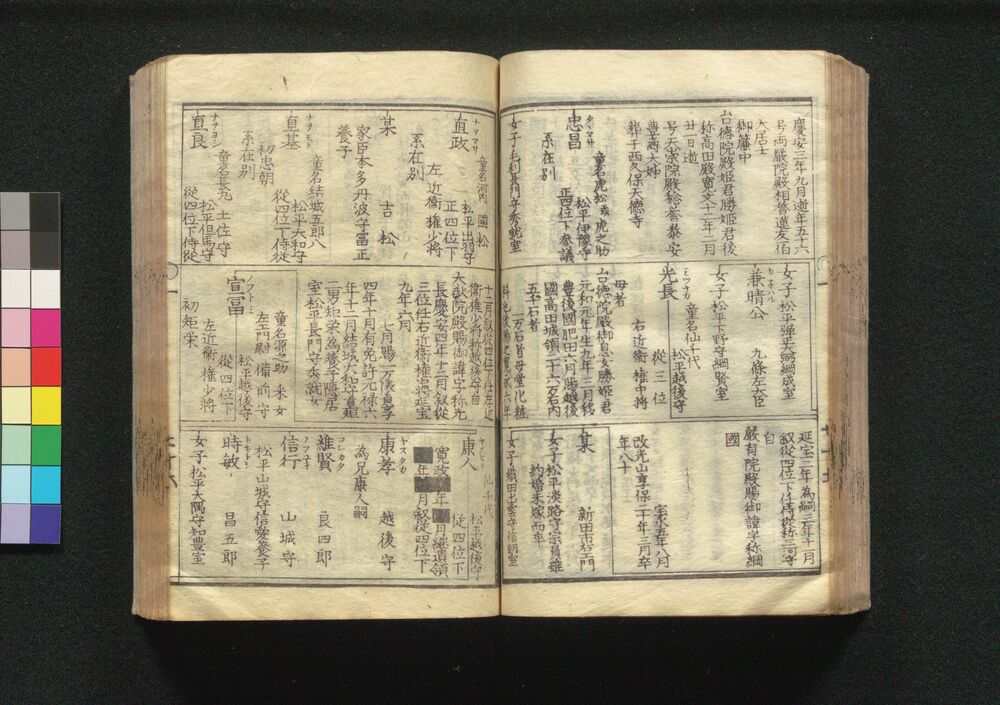 慶安三年九月逝年五十六
号西巌院殿相誉蓮友泊
大居士
御簾中
台徳院殿姫君勝姫君後
称高田殿寛文十二年二月
廿一日逝
号天崇院殿穏誉泰安
豊寿大姉
葬于西久保天徳寺
忠昌
タヽマサ
童名虎松或虎之助
松平伊豫守
正四位下参議
系在別
女子毛利長門守秀就室
直政
ナヲマサ
童名河内 國松
松平出羽守
正四位下
左近衛権少将
系在別
某 吉松
家臣本多丹波守冨正
養子
直基
ナヲモト
童名結城五郎八
松平大和守
従四位下侍従
初忠朝
系在別
直良
ナヲヨシ
童名長九 土佐守
松平但馬守
従四位下侍従
女子松平弾正大弼綱成室
兼晴公 九條左大臣
カネハル
女子松平下野守綱賢室
光長
ミツナカ
童名仙千代
松平越後守
従三位
右近衛権中将
母者
台徳院殿御息女勝姫君
元和元年生九年三月移
豊後國肥田六月賜越後
國高田城領二十六万石内
五千石者
一万石者母堂化粧
十二月叙従四位下任左近
衛権少将称越後守自
大猷院殿賜御諱字称光
長慶安四年十二月叙従
三位任右近衛権中将延宝
九年六月
七月賜一万俵貞享
四年十月有免許元禄六
年十二月結城大和守直矩
二男矩栄為養子隠居
室松平長門守秀就女
宣冨
ノフトミ
童名源之助 釆女
左エ門尉 備前守
松平越後守
従四位下
左近衛権少将
初矩栄
延宝二年為嗣三年十一月
叙従四位下任侍従称三河守
自
厳有院殿賜御諱字称綱
國
宝永五年八月
改光山享保二十年三月卒
年八十
某 新田市右エ門
女子松平淡路守宗員雖
約婚未嫁而卒
女子織田出雲守信朝室
康人
仙千代
松平越後守
従四位下
寛政 年 月継遺領
年 月叙従四位下
康孝 越後守
ヤスタカ
為兄康人嗣
維賢 良四郎
コレカタ
信行 山城守
ノフユキ
松平山城守信愛養子
時敏 昌五郎
トキトシ
女子松平大隅守知豊室